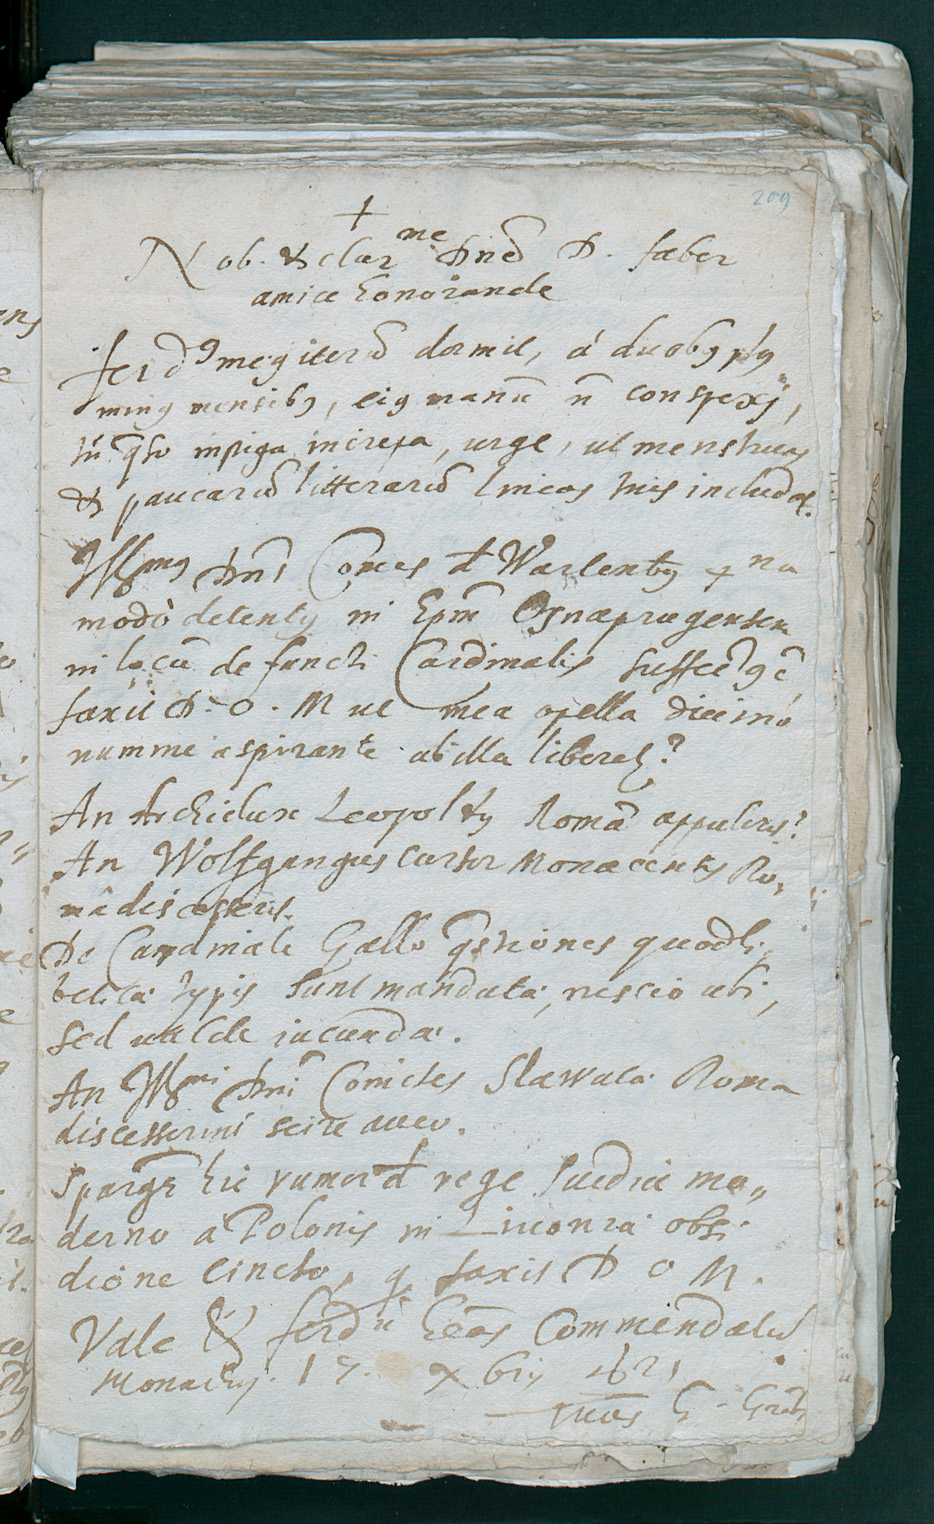 209
†
Nob. & clarne Dne D. faber
amice honorande
ferd9 meus iterū dormit, á duobus plus
minus mensibus, eius manū n conspexj,
tú qso inpiga, increpa, urge, ut menstruas
& paucarū litterarū lineas tuis includat.
Illmus Dns Comes d Wartenbg
modò detentus in Epm Osnaprugensem
in locū defuncti Cardinalis suffectus é
faxit D. O. M ut mea opella divino
numine aspirante ab illa liberet?
An Archidux Leopoldus Romā appulerit?
An Wolfgangus cursor Monacensis Ro„
mâ discesserit.
De Cardinale Gallo qstiones quodli„
betica typis sunt mandata, nescio ubi,
sed valde iucunda.
An Illmi Dni Comites Slawata Roma
discesserint scire aveo.
Spargr hic rumor d rege Suediæ mo„
derno à Polonis in Livonia obsi„
dione cincto, q faxit D O M.
Vale & ferdū commendatū
Monachij. 17. Xbris 1621
tuus G.